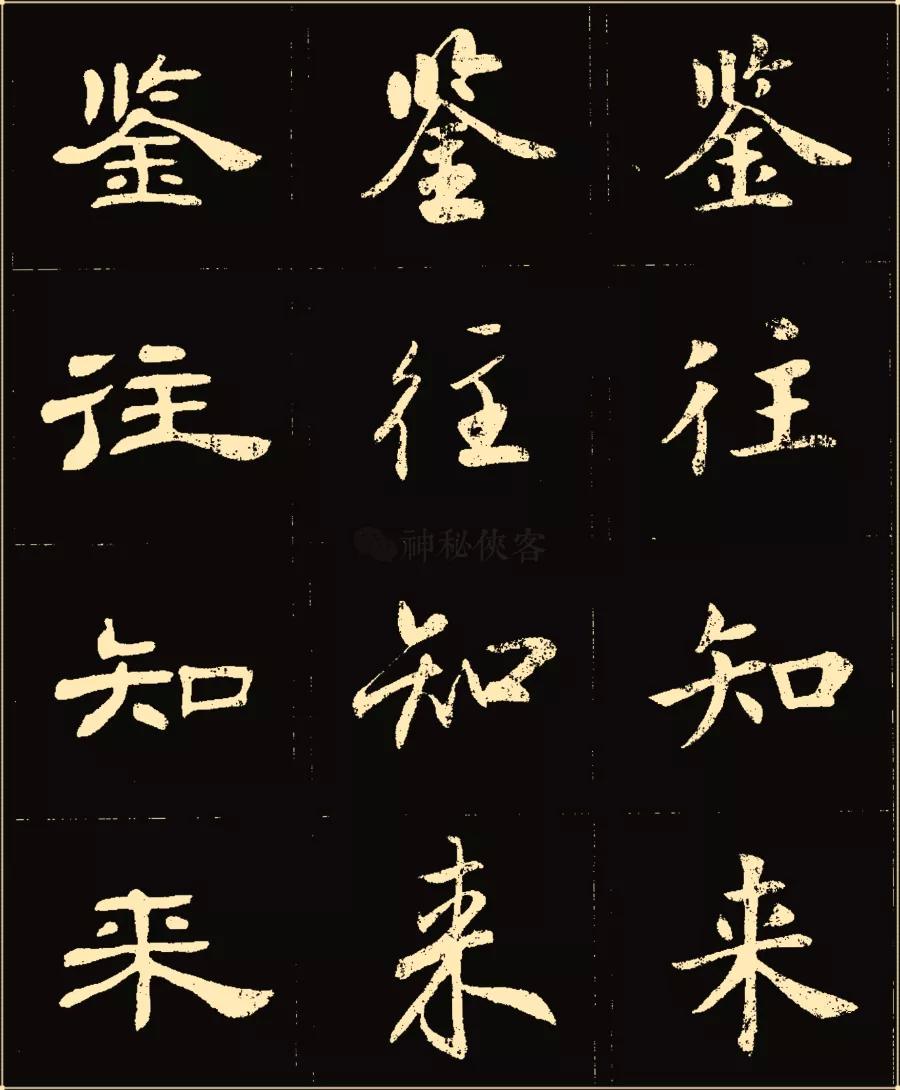 鉴 鉴 鉴
往 往 往
神秘侠客
知 知 知
来 来 来